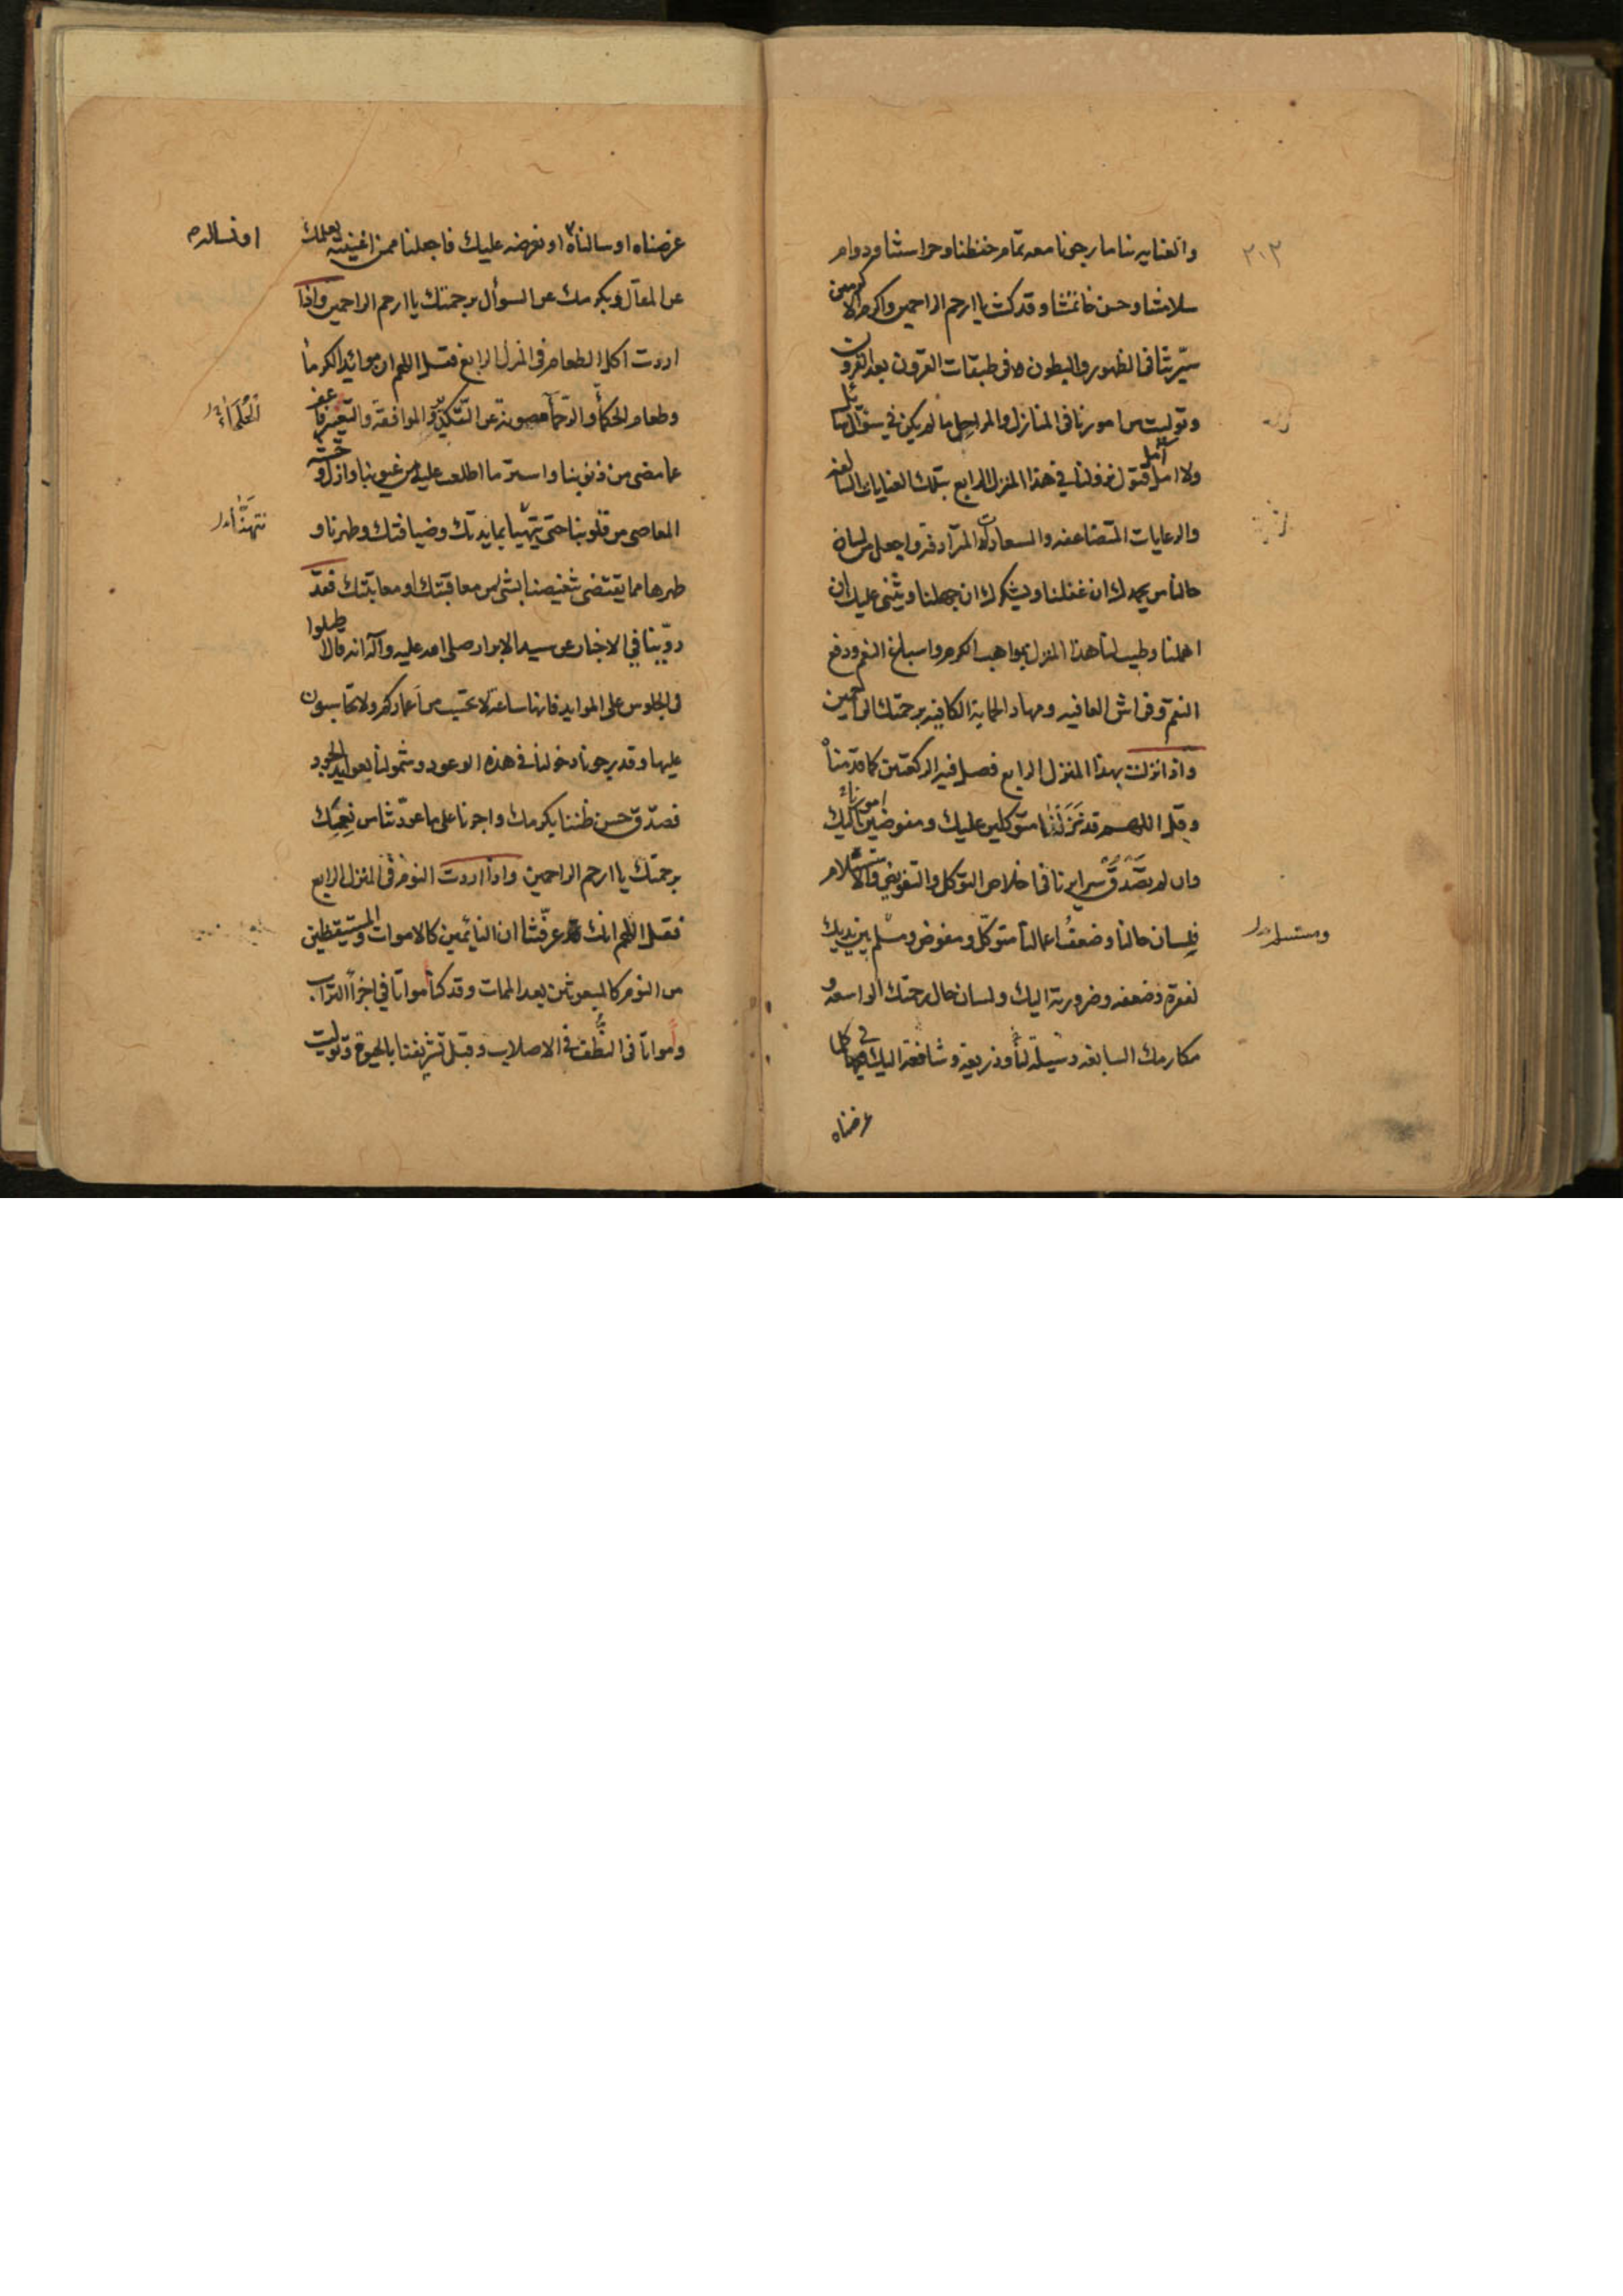 ٢٠٣
والعنايه بنا ما رجونا معه تمام حفظنا وحراستنا ودوام
سلامتنا وحسن خاتمتنا وقد كنت يا ارحم الراحمين واكرم الاكرمين
سيّرتنا في الظهور والبطون وفي طبقات القرون بعد القرون
وتوليت من امورنا في المنازل والمراحل ما لم يكن في سؤال سائل
ولا امل آمل فتول نزولنا في هذا المنزل الرابع بتلك العنايات السالفه
والرعايات المتضاعفه والسعادات المترادفه واجعل من لسان
حالنا من يحمدك ان غفلنا ويشكرك ان جهلنا ويثنى عليك ان
اهملنا وطيب لنا هذا المنزل بمواهب الكرم واسباغ النعم ودفع
النقم وفراش العافيه ومهاد الحماية الكافيه برحمتك يا ارحم الراحمين
واذا نزلت بهذا المنزل الرابع فصل فيه الركعتين كما قدمناه
وقل اللهم قد نزلنا متوكلين عليك ومفوضين امورنا اليك
وان لم تصدق سرايرنا في اخلاص التوكل والتفويض والاستسلام
فلسان حالنا وضعف اعمالنا متوكل ومفوض ومسلم بين يديك
ومستسلم
لفقره وضعفه وضرورته اليك ولسان حال رحمتك الواسعه و
مكارمك السابغه وسيلة لنا وذريعة وشافعة اليك في كلما
عرضناه
عرضناه او سالناه او نعرضه عليك فاجعلنا ممن اغنيته بعلمك
او نساله
عن المقال وبكرمك عن السؤال برحمتك يا ارحم الراحمين واذا
اردت اكل الطعام في المنزل الرابع فقل اللهم ان موائد الكرماء
وطعام الحكماء والرحماء مصونة عن التكدير في الموافقة والتعيير فاعف
الحلماء
عما مضى من ذنوبنا واستر ما اطلعت عليه من عيوبنا وازل وحشة
المعاصى من قلوبنا حتى يتهيا بمايدتك وضيافتك وطهرنا و
نتهنأ
طهرها مما يقتضى تنغيصنا بشى من معاقبتك او معاتبتك فقد
روينا في الاخبار عن سيد الابرار صلى الله عليه وآله انه قال اطيلوا
في الجلوس على الموايد فانها ساعة لا تحتسب من اعماركم ولا تحاسبون
عليها وقد رجونا دخولنا في هذه الوعود وشمولنا بعوايد الجود
فصدق حسن ظننا بكرمك واجرنا على ما عودتنا من نعمك
برحمتك يا ارحم الراحمين واذا اردت النوم في المنزل الرابع
فقل اللهم انك قد عرفتنا ان النائمين كالاموات والمستيقظين
من النوم كالمبعوثين بعد الممات وقد كنا امواتا في اجزاء التراب
وامواتا في النطف في الاصلاب وقبل تشريفنا بالحيوة وتوليت